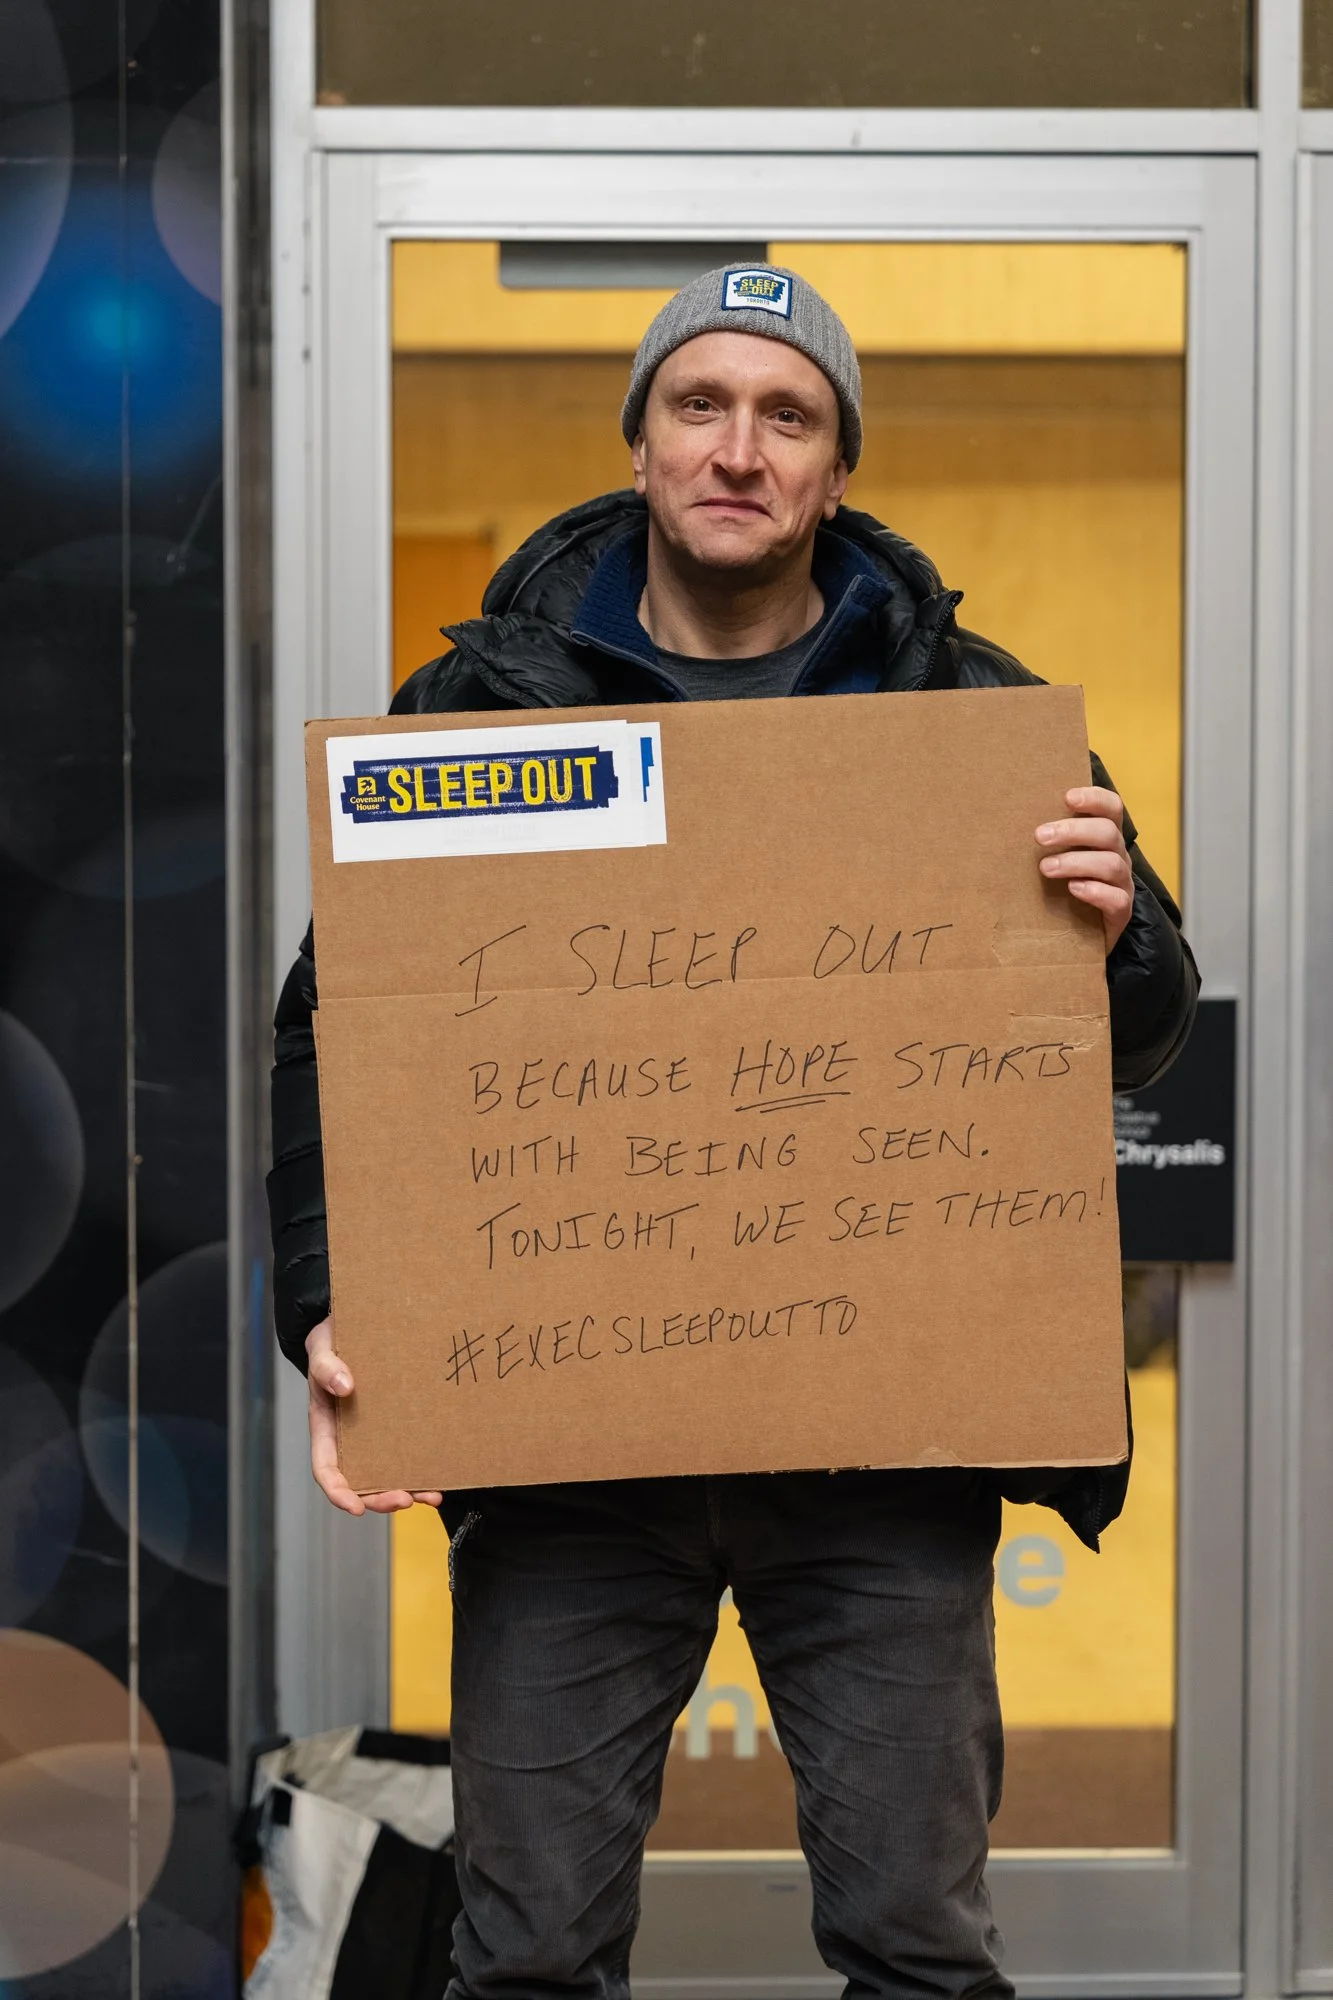 SLEEP
OUT
TORONTO
Covenant
House
SLEEP OUT
I SLEEP OUT
BECAUSE HOPE STARTS
WITH BEING SEEN.
TONIGHT, WE SEE THEM!
#EXECSLEEPOUTTO
Chrysalis
e
h